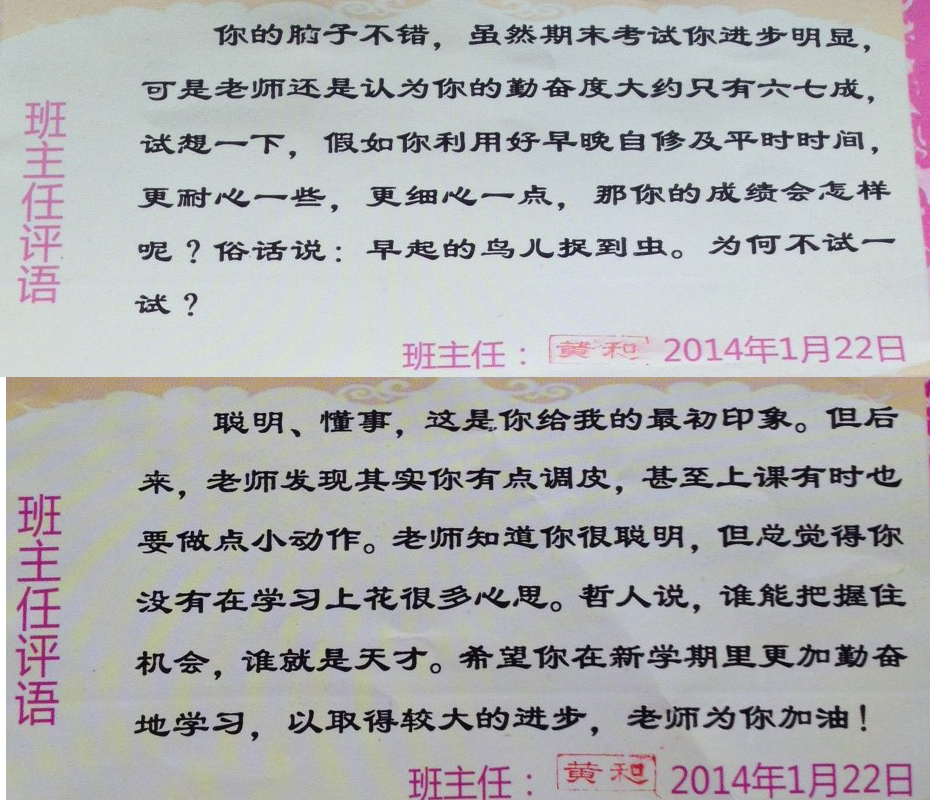 班主任评语
你的脑子不错，虽然期末考试你进步明显，
可是老师还是认为你的勤奋度大约只有六七成，
试想一下，假如你利用好早晚自修及平时时间，
更耐心一些，更细心一点，那你的成绩会怎样
呢？俗话说：早起的鸟儿捉到虫。为何不试一
试？
班主任：黄和 2014年1月22日
班主任评语
聪明、懂事，这是你给我的最初印象。但后
来，老师发现其实你有点调皮，甚至上课有时也
要做点小动作。老师知道你很聪明，但总觉得你
没有在学习上花很多心思。哲人说，谁能把握住
机会，谁就是天才。希望你在新学期里更加勤奋
地学习，以取得较大的进步，老师为你加油！
班主任：黄和 2014年1月22日